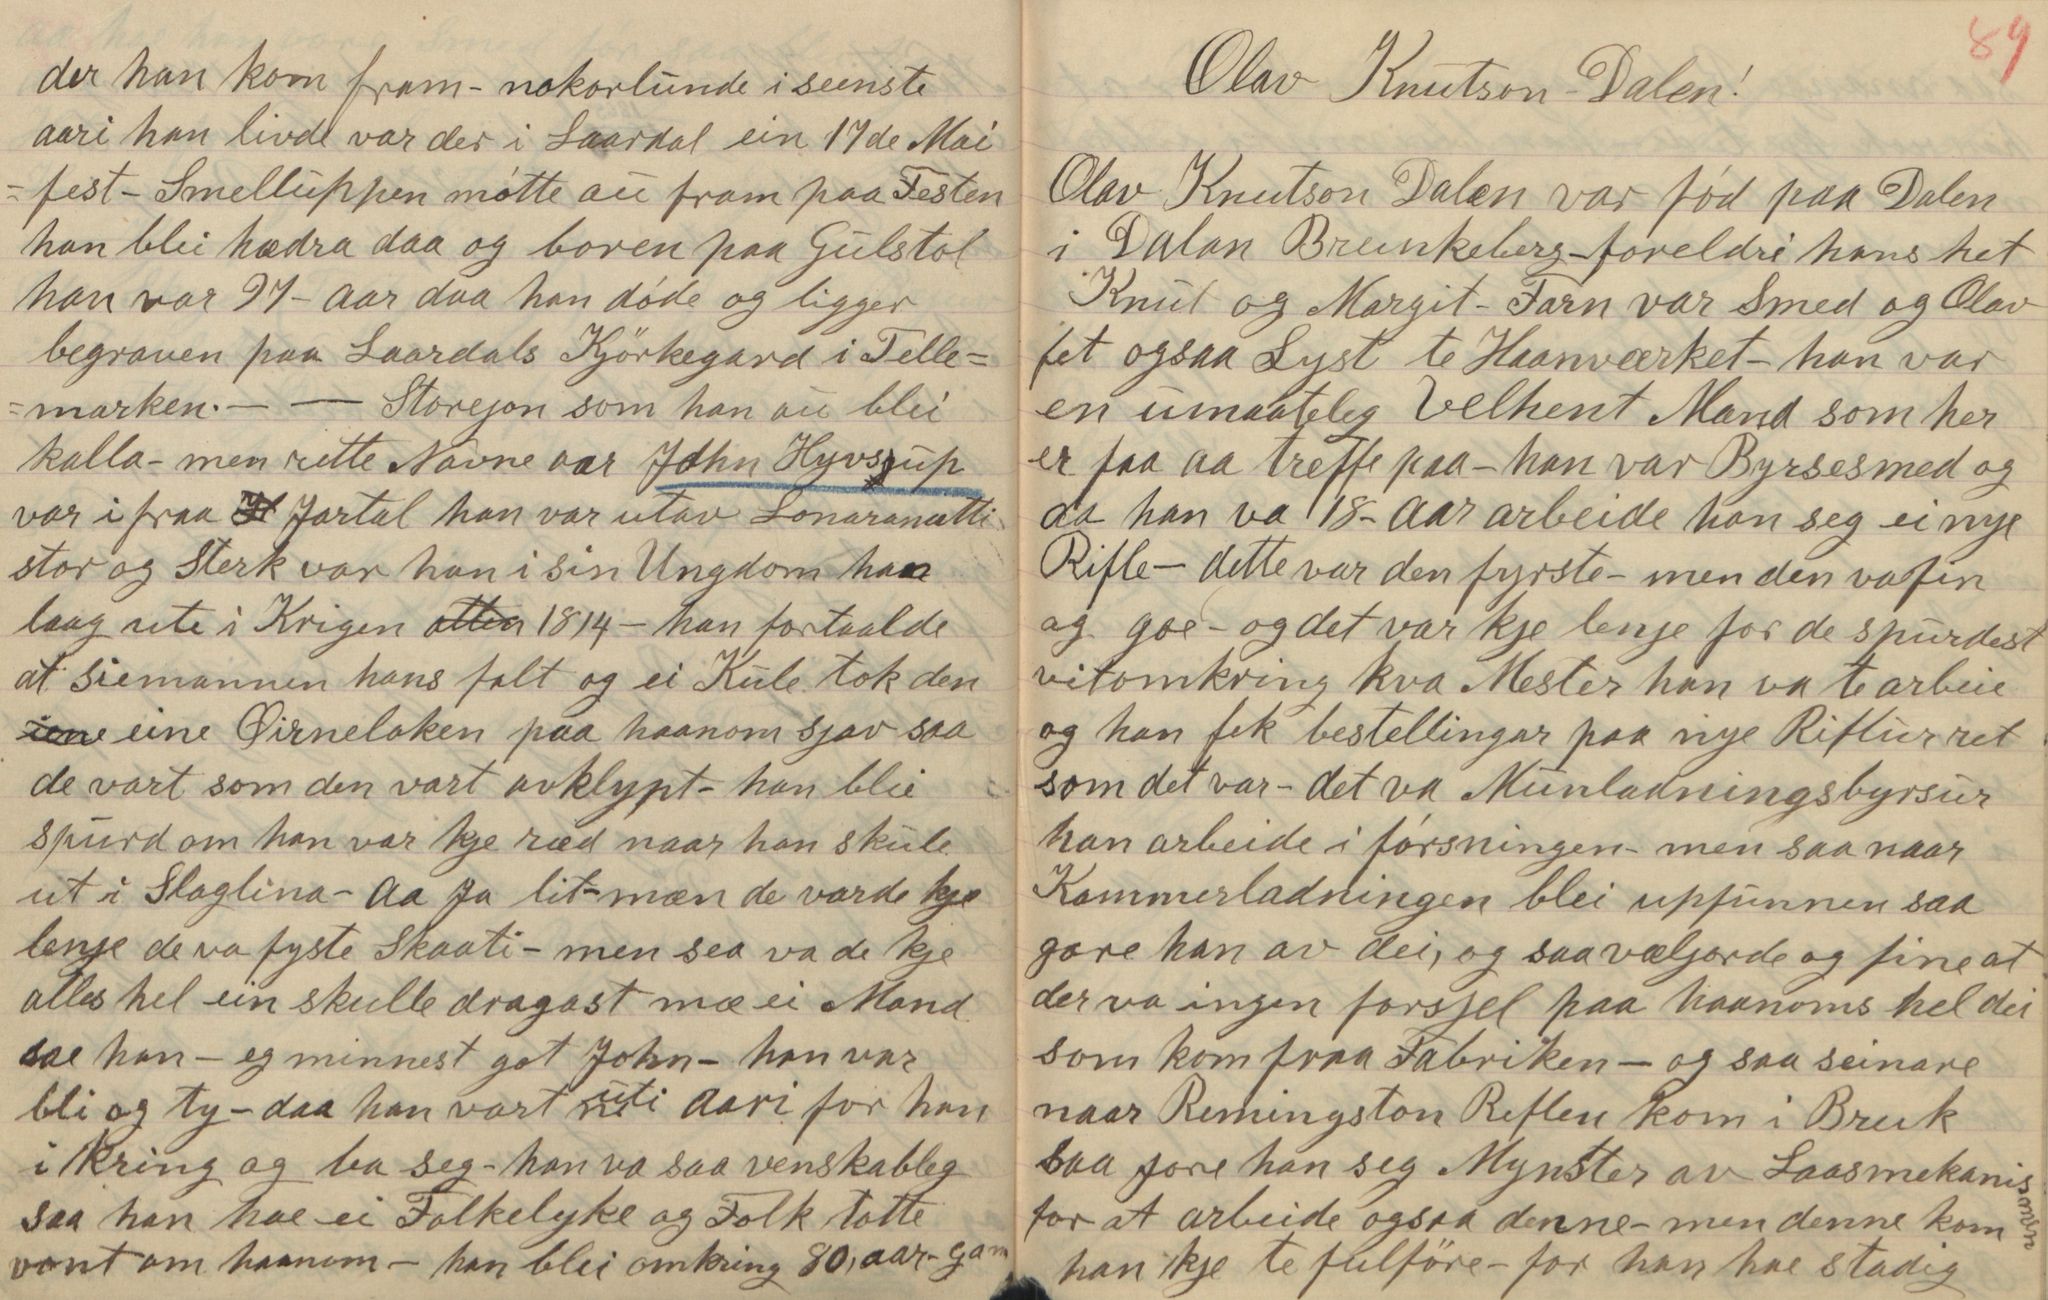 der han kom fram - nokorlunde i seenste
aari han livde var der i Laardal ein 17de Mai
= fest - Smelluppen møtte au fram paa Festen
han blei hædra daa og boren paa Gulstol
han var 97 - aar daa han døde og ligger
begraven paa Laardals Kjörkegard i Telle=
=marken. - — Storejon som han au blei
kalla - men rette Navne var John Hyvsjup
var i fraa Jartal han var utav Lonaranætti
stor og Sterk var han i sin Ungdom han
laag ute i Krigen 1814 - han fortaalde
at siemannen hans falt og ei Kule tok den
eine Øirnelaken paa haanom sjav saa
de vart som den vart avklypt - han blie
spurd om han var kje ræd naar han skule
ut i Slaglina - Aa Ja lit - mæn de varde kje
lenje de va fyste Skaati - men sea va de kje
alles hel ein skulle dragast mæ ei Mand
sae han - eg minnest got John - han var
bli og ty - daa han vart uti Aari for han
i kring og ba seg - han va saa venskableg
saa han hae ei Folkelyke og Folk totte
vont om haanom - han blei omkring 80, aar - gam
89
Olav Knutson - Dalen!
Olav Knutson Dalen var fød paa Dalen
i Dalan Brunkeberg - foreldri hans het
Knut og Margit - Farn var Smed og Olav
fet ogsaa Lyst te Haanværket - han var
en umaateleg Velhent Mand som her
er faa aa treffe paa - han var Byrsesmed og
da han va 18 - Aar arbeide han seg ei nye
Rifle - dette var den fyrste - men den va fin
og goe - og det var kje lenje for de spurdest
vitomkring kva Mester han va te arbeie
og han fek bestellingar paa nye Riflur ret
som det var - det va Munladningsbyrsur
han arbeide i førsningen - men saa naar
Kammerladningen blei upfunnen saa
gore han av dei, og saa væljorde og fine at
der va ingen forsjel paa haanoms hel dei
som kom fraa Fabriken - og saa seinare
naar Remingston Riflen kom i Bruk
saa jore han seg Mynster av Laasmekanismen
for at arbeide ogsaa denne - men denne kom
han kje te fulföre - for han hae stadig